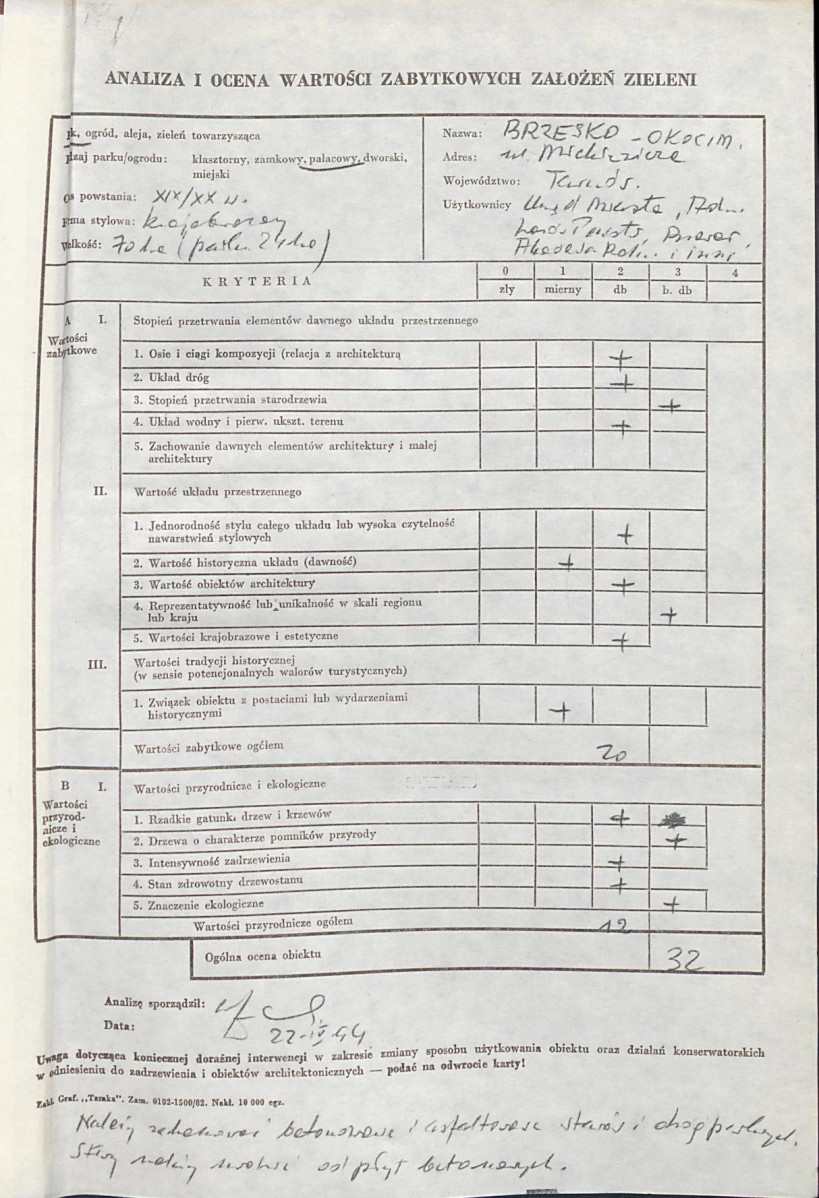 ANALIZA I OCENA WARTOŚCI ZABYTKOWYCH ZAŁOŻEŃ ZIELENI
k, ogród, aleja, zieleń towarzysząca
dzaj parku/ogrodu: klasztorny, zamkowy, pałacowy, dworski,
miejski
powstania: XIX/XX w.
ma stylowa: krajobrazowy
elkość: 70 ha (park 24 ha)
Nazwa: BRZESKO - OKOCIM,
Adres: ul. Mickiewicza
Województwo: Tarnów.
Użytkownicy Urząd Miasta,
i inni
KRYTERIA
0 1 2 3 4
zły mierny db b. db
A I. Stopień przetrwania elementów dawnego układu przestrzennego
Wartości
zabytkowe
1. Osie i ciągi kompozycji (relacja z architekturą +
2. Układ dróg +
3. Stopień przetrwania starodrzewia +
4. Układ wodny i pierw. ukszt. terenu +
5. Zachowanie dawnych elementów architektury i małej
architektury
II. Wartość układu przestrzennego
1. Jednorodność stylu całego układu lub wysoka czytelność
nawarstwień stylowych +
2. Wartość historyczna układu (dawność) +
3. Wartość obiektów architektury +
4. Reprezentatywność lub unikalność w skali regionu
lub kraju +
5. Wartości krajobrazowe i estetyczne +
III. Wartości tradycji historycznej
(w sensie potencjonalnych walorów turystycznych)
1. Związek obiektu z postaciami lub wydarzeniami
historycznymi +
Wartości zabytkowe ogółem 20
B I. Wartości przyrodnicze i ekologiczne
Wartości
przyrod-
nicze i
ekologiczne
1. Rzadkie gatunki drzew i krzewów +
2. Drzewa o charakterze pomników przyrody +
3. Intensywność zadrzewienia +
4. Stan zdrowotny drzewostanu +
5. Znaczenie ekologiczne +
Wartości przyrodnicze ogółem 12
Ogólna ocena obiektu 32
Analizę sporządził:
Data: 22-IV-94
Uwaga dotycząca koniecznej doraźnej interwencji w zakresie zmiany sposobu użytkowania obiektu oraz działań konserwatorskich
w odniesieniu do zadrzewienia i obiektów architektonicznych — podać na odwrocie karty!
Zakł. Graf. „Tamka". Zam. 0102-1500/82. Nakł. 10 000 egz.
Należy betonowanie i asfaltowanie stawów i dróg parkowych.
Stawy należy uwolnić od płyt betonowych.